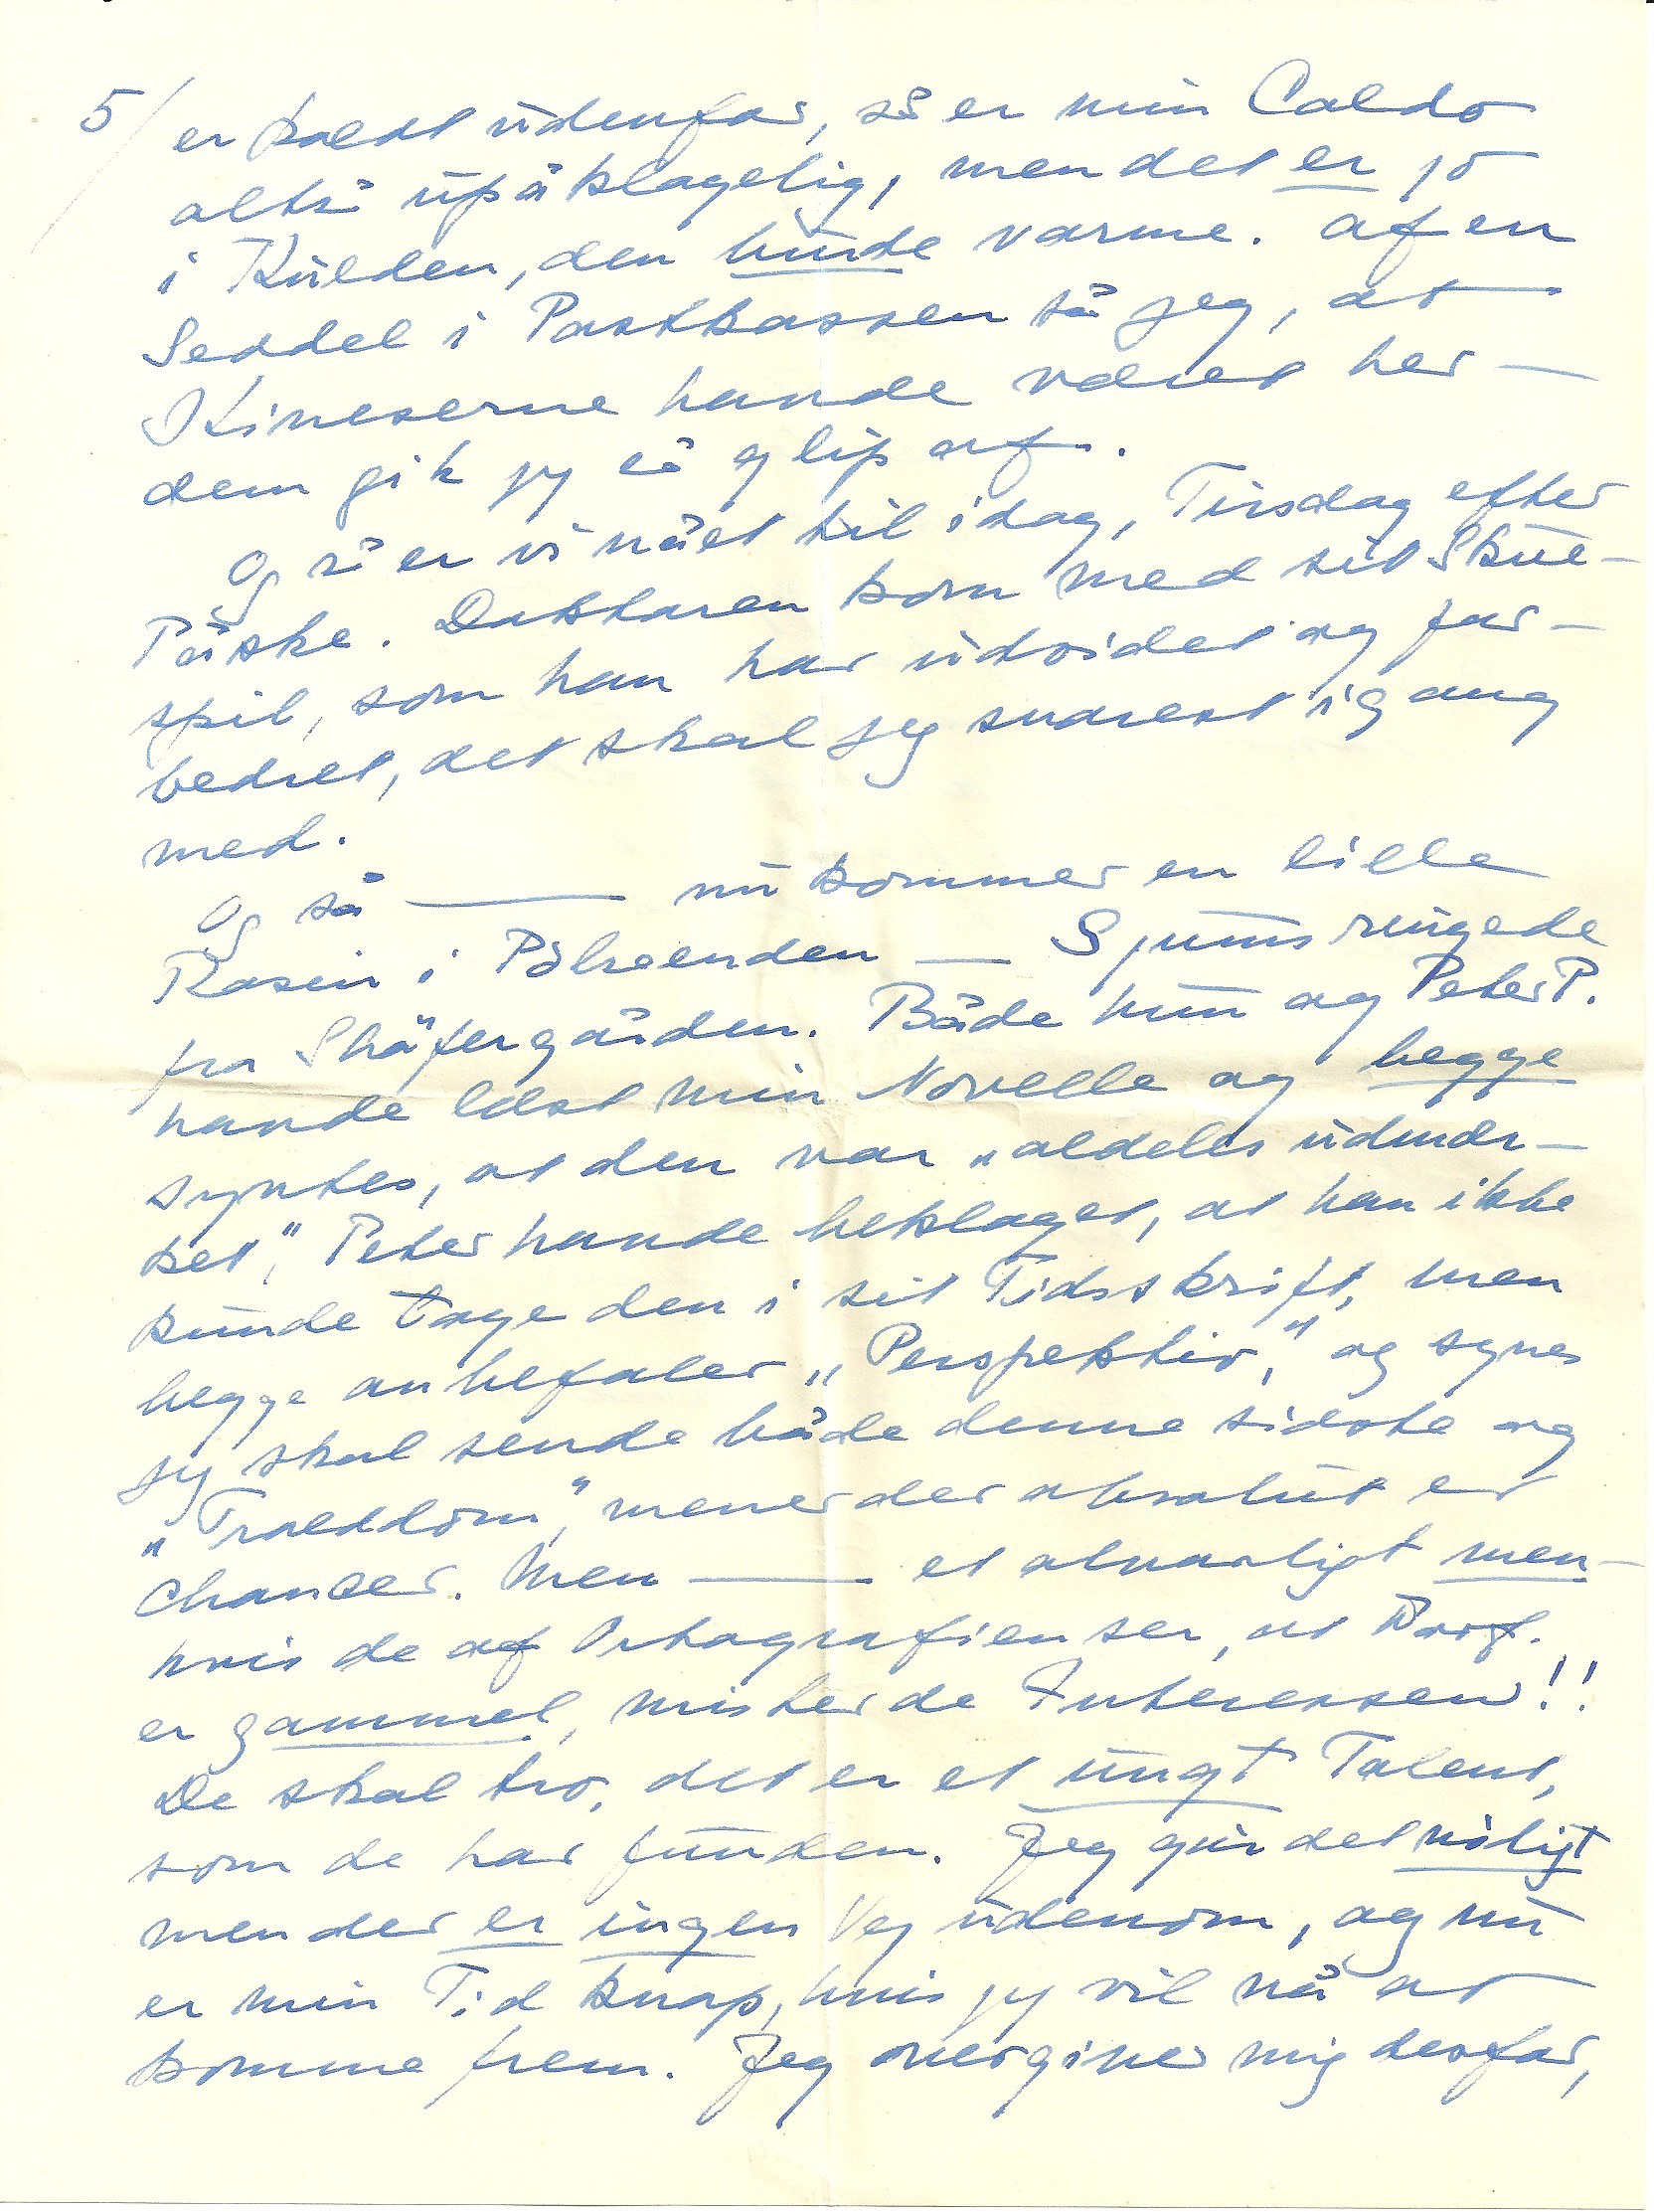 5/ er koldt udenfor, så er min Caldo
altså upåklagelig, men det er jo
i Kulden, den burde varme. Af en
Seddel i Postkassen så jeg, at
Kineserne havde været her —
dem gik jeg så glip af.
Og så er vi nået til idag, Tirsdag efter
Påske. Doktoren kom med sit Skue-
spil, som han har udvidet og for-
bedret, det skal jeg snarest igang
med.
Og så — nu kommer en lille
Rosin i Pølseenden — Sjums ringede
fra Shäfergården. Både hun og Peter P.
havde læst min Novelle og begge
syntes, at den var „aldeles udmær-
ket", Peter havde beklaget, at han ikke
kunde tage den i sit Tidsskrift, men
begge anbefaler „Perspektiv", og synes
jeg skal sende både denne sidste og
„Trælddom", mener der absolut er
Chancer. Men — et alvorligt men-
hvis de af Ortografien ser, at Forf.
er gammel, mister de Interessen!!
De skal tro, det er et ungt Talent,
som de har funden. Jeg gør det nødigt
men der er ingen Vej udenom, og nu
er min Tid knap, hvis jeg vil nå at
komme frem. Jeg overgiver mig derfor,